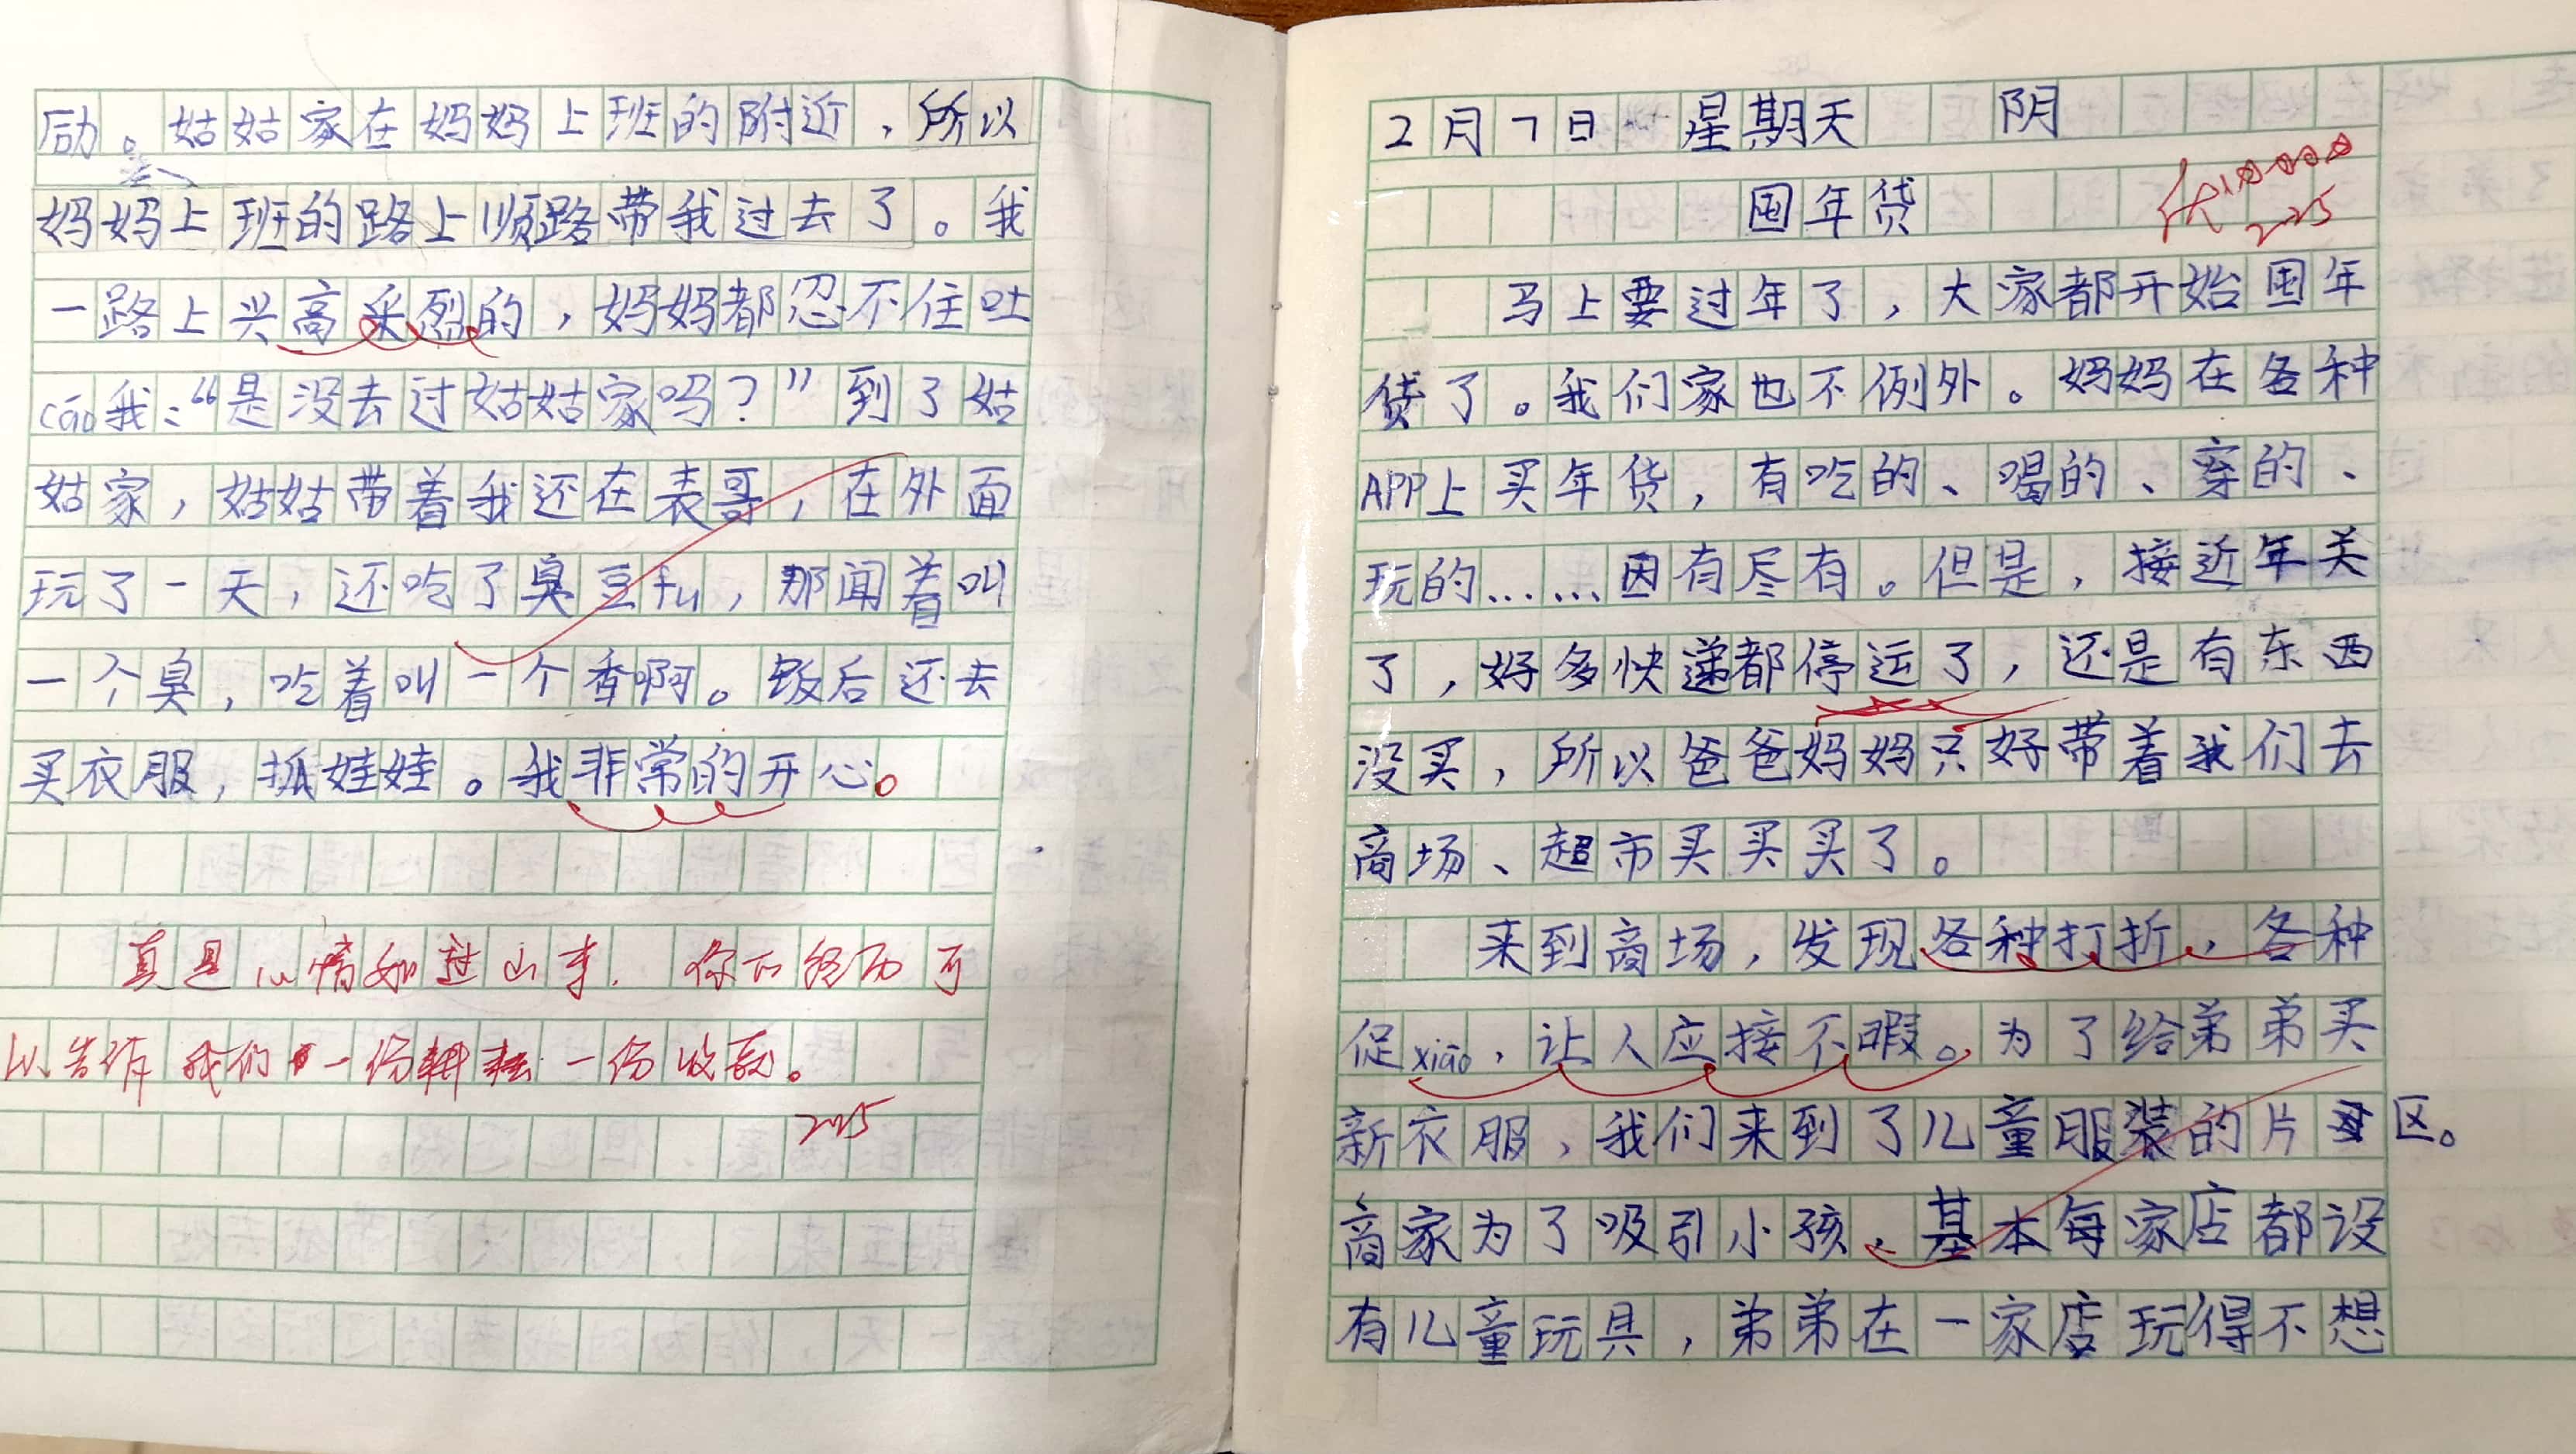 励。姑姑家在妈妈上班的附近，所以
妈妈上班的路上顺路带我过去了。我
一路上兴高采烈的，妈妈都忍不住吐
cāo我：“是没去过姑姑家吗？”到了姑
姑家，姑姑带着我还在表哥，在外面
玩了一天，还吃了臭豆fu，那闻着叫
一个臭，吃着叫一个香啊。饭后还去
买衣服，抓娃娃。我非常的开心。
真是心情如过山车，你的经历可
以告诉我们一份耕耘一份收获。
2月7日 星期天 阴
囤年货
马上要过年了，大家都开始囤年
货了。我们家也不例外。妈妈在各种
APP上买年货，有吃的、喝的、穿的、
玩的……因有尽有。但是，接近年关
了，好多快递都停运了，还是有东西
没买，所以爸爸妈妈只好带着我们去
商场、超市买买买了。
来到商场，发现各种打折，各种
促xiāo，让人应接不暇。为了给弟弟买
新衣服，我们来到了儿童服装的片区。
商家为了吸引小孩，基本每家店都设
有儿童玩具，弟弟在一家店玩得不想